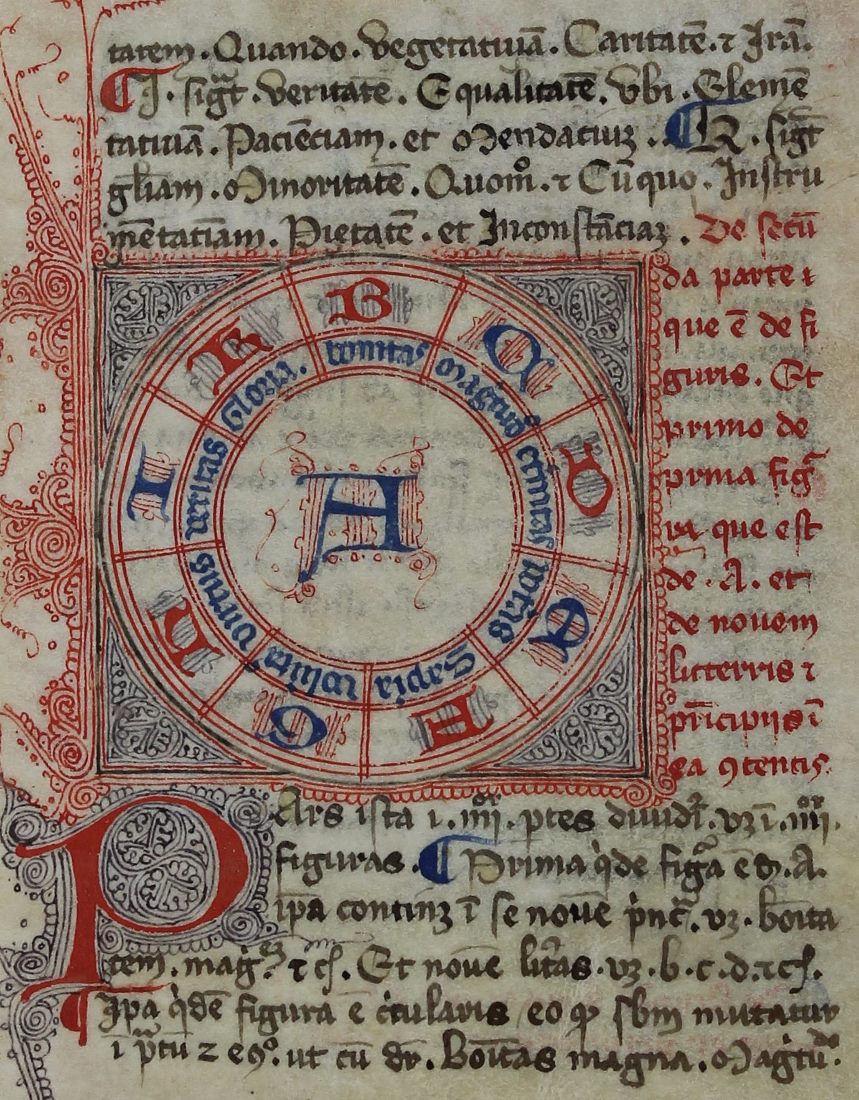 tatem. Quando. vegetatiuā. Caritatē. ⁊ Irā.
¶ I. sigt̄. veritatē. Equalitatē. vbi. Elemē
tatiuā. Paciēciam. et Mendaciuꝫ. ¶ K. sigt̄
gl̄iam. Minoritatē. Quomº. ⁊ Cū quo. Instru
mētatiuam. Pietatē. et Inconstāciaꝫ. De secū
da parte
que ē de fi
guris. Et
primo de
prima figu
ra que est
de. A. et
de nouem
litterris ⁊
prīcipiis ī
ea ꝯtentis.
B
C
D
E
F
G
H
I
K
bonitas
magītudo
et̄nitas
potās
Sapīa
volūta
virtus
veritas
Gloria.
A
PArs ista ī. iiijor. ptes diuidī. vꝫ ī. iiijor.
figuras. ¶ Prima qͥde figᵃ ē d. A.
ipa continꝫ ī se nouē pͥnc̄. vꝫ. boīta
tem. mag. ⁊ cͥ. Et nouē lit̄as. vꝫ. b. c. d. ⁊ cͥ.
¶ Ipa qͥdē figura ē cͥcularis eo ꝙ sbm mutatur
ī p̄tū ⁊ eꝯº. ut cū dr̄. Boīitas magna. Magītudo.